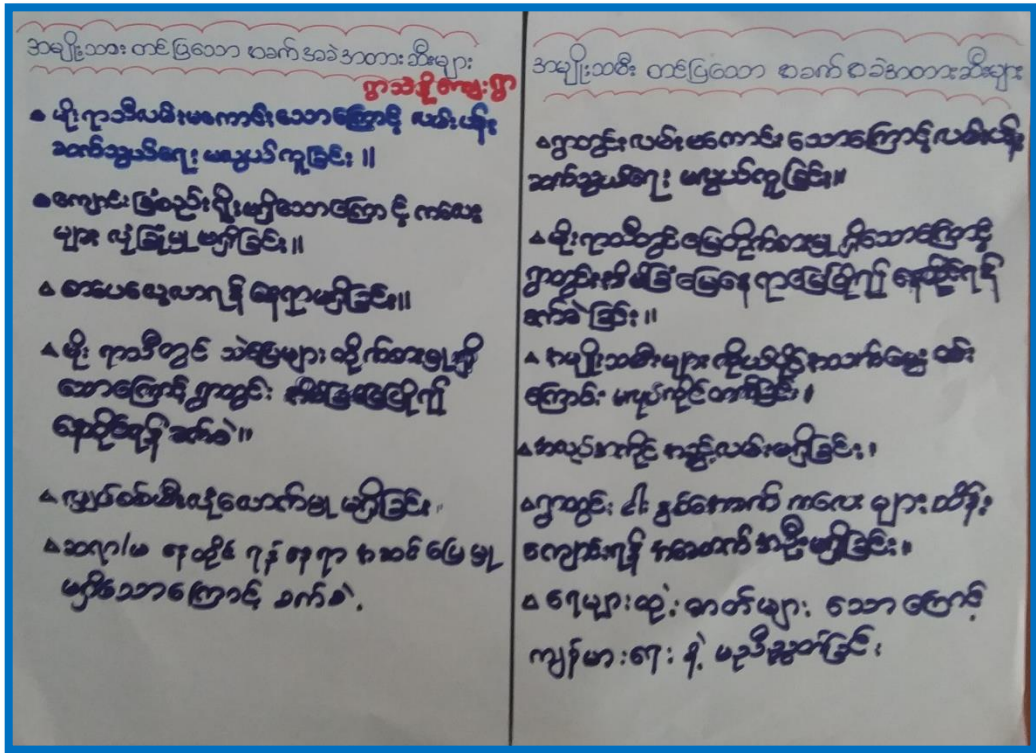 အမျိုးသား တင်ပြသော အခက် အခဲ အတားဆီးများ
ရွာသစ်ကျေးရွာ
မိုးရာသီလမ်းမကောင်းသောကြောင့် လမ်းပန်း
ဆက်သွယ်ရေး မလွယ်ကူခြင်း။
ကျောင်းခြံစည်းရိုးမရှိသောကြောင့် ကလေး
များ လုံခြုံမှု မရှိခြင်း။
စာပေလေ့လာရန် နေရာမရှိခြင်း။
မိုး ရာသီတွင် သဲမြေများ တိုက်စားမှုရှိ
သောကြောင့် ရွာတွင်း အိမ်ခြံမြေပြိုကျ၍
နေထိုင်ရန် ခက်ခဲ။
လျှပ်စစ်မီးလုံလောက်မှု မရှိခြင်း
ဆရာ/မ နေထိုင် ရန် နေရာ အဆင်မပြေမှု
မရှိသောကြောင့် ခက်ခဲ.
အမျိုးသမီး တင်ပြသော အခက်အခဲအတားဆီးများ
ရွာတွင်းလမ်းမကောင်းသောကြောင့် လမ်းပန်း
ဆက်သွယ်ရေး မလွယ်ကူခြင်း။
မိုးရာသီတွင် မြေတိုက်စားမှု ရှိသောကြောင့်
ရွာတွင်းအိမ်ခြံ မြေနေရာမြေပြို၍ နေထိုင်ရန်
ခက်ခဲခြင်း။
အမျိုးသမီးများ ကိုယ်ပိုင်အသက်မွေးဝမ်း
ကြောင်း မလုပ်ကိုင်တတ်ခြင်း။
အလုပ်အကိုင် အခွင့်လမ်းမရှိခြင်း၊
ရွာတွင်း ငါးနှစ်အောက် ကလေး များ ထိန်း
ကျောင်းရန် အဆောက်အဦးမရှိခြင်း။
ရေများထုံးဓာတ်များ သောကြောင့်
ကျန်မာရေး နဲ့ မညီညွတ်ခြင်း